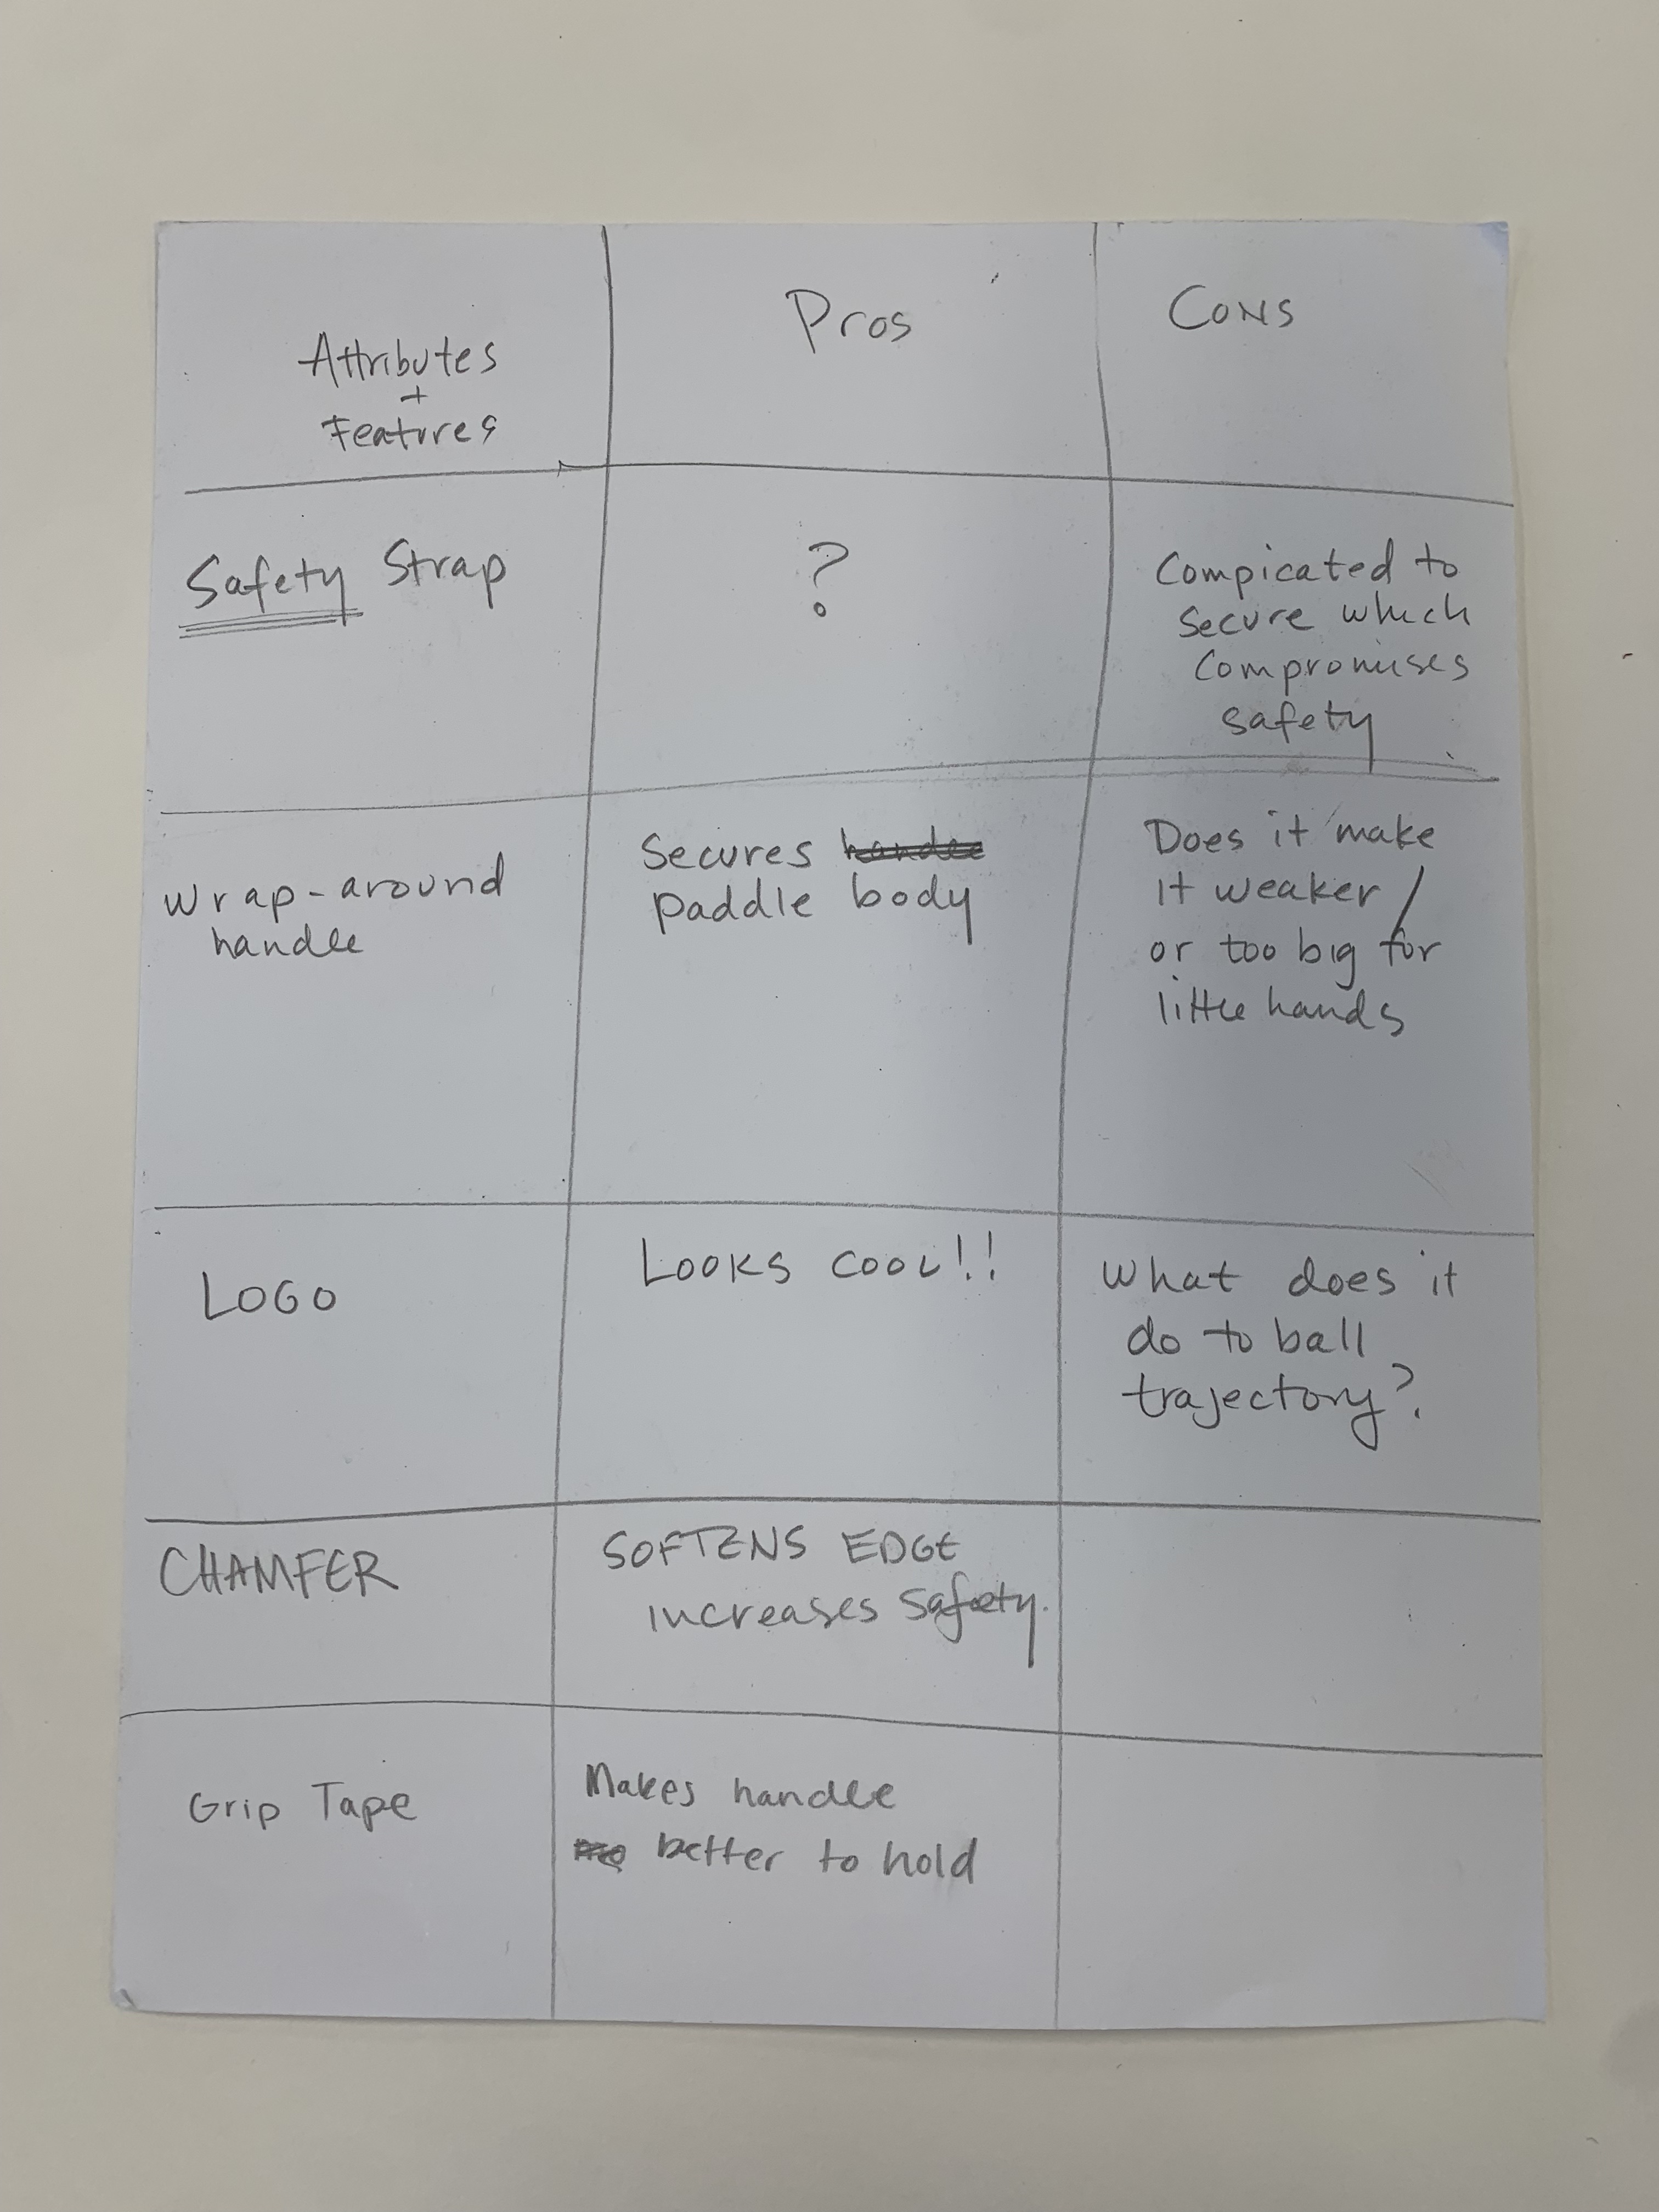 Attributes
+
Features
Pros
Cons
Safety Strap
?
Compicated to
secure which
compromises
safety
Wrap-around
handle
Secures handle
paddle body
Does it make
it weaker /
or too big for
little hands
LOGO
Looks cool!!
What does it
do to ball
trajectory?
CHAMFER
SOFTENS EDGE
increases safety.
Grip Tape
Makes handle
better to hold